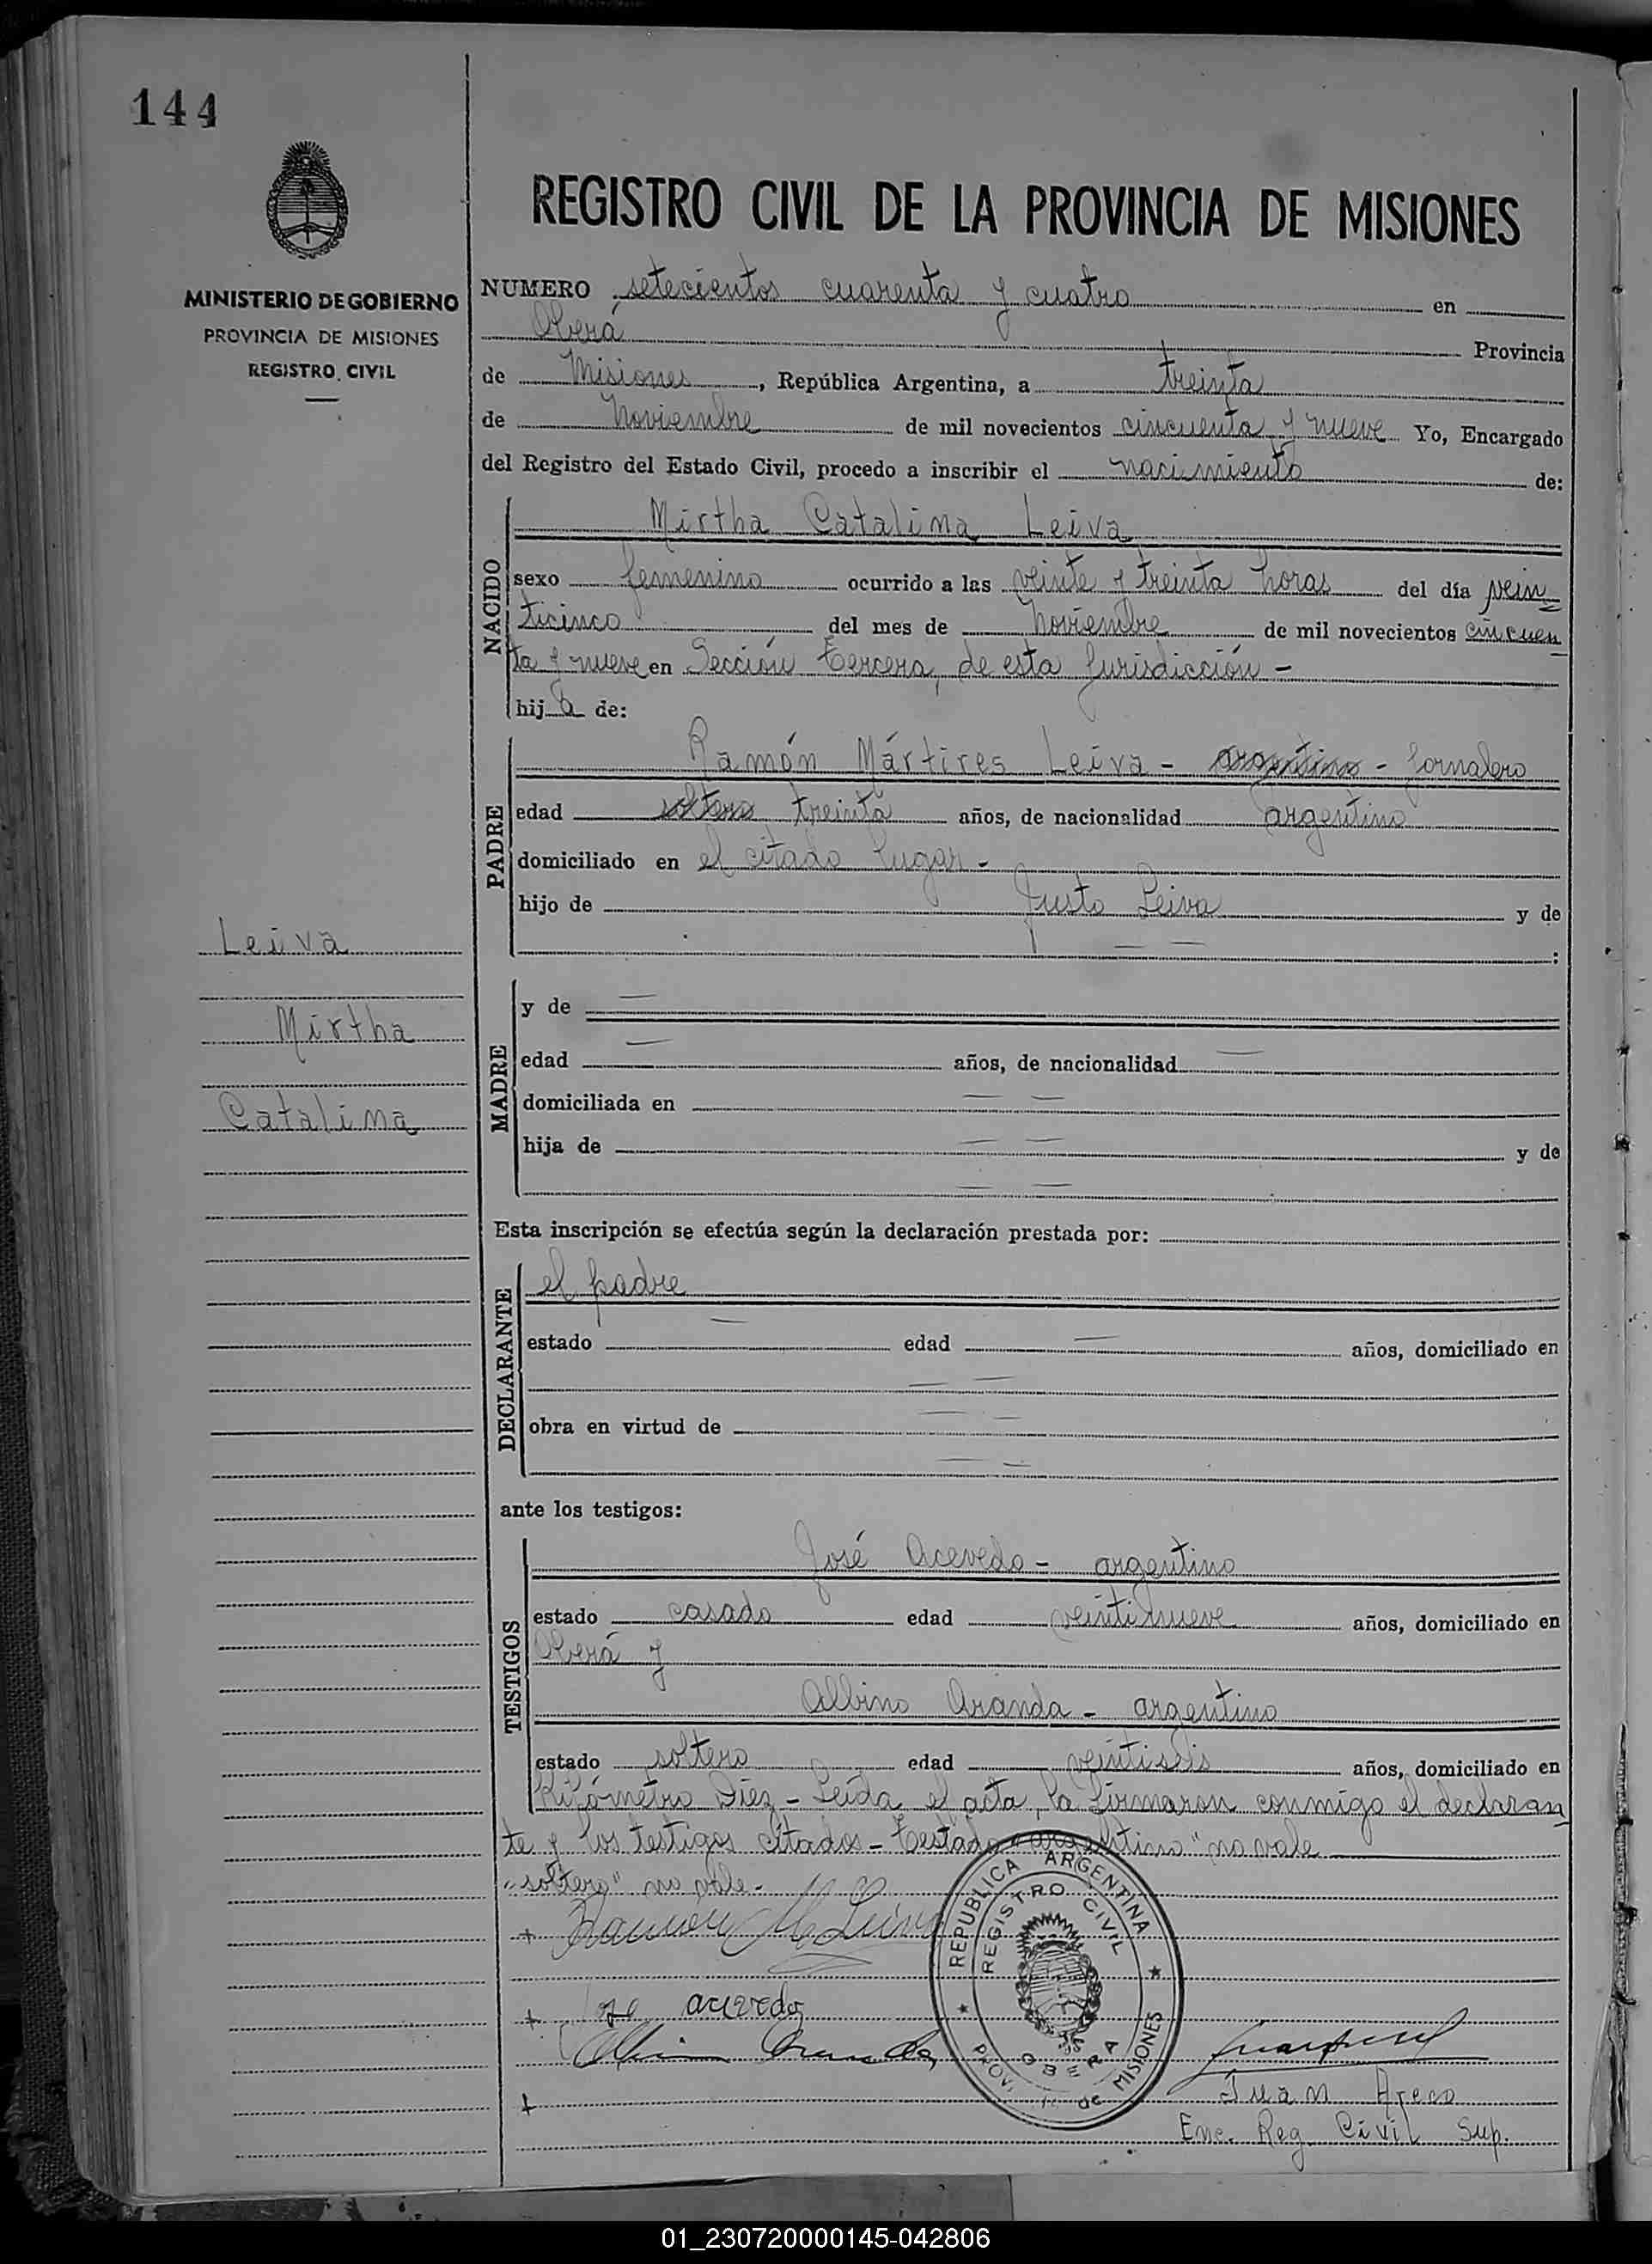 144
REGISTRO CIVIL DE LA PROVINCIA DE MISIONES
MINISTERIO DE GOBIERNO
PROVINCIA DE MISIONES
REGISTRO CIVIL
NUMERO setecientos cuarenta y cuatro en
Oberá Provincia
de Misiones, República Argentina, a treinta
de Noviembre de mil novecientos cincuenta y nueve Yo, Encargado
del Registro del Estado Civil, procedo a inscribir el nacimiento de:
NACIDO
Mirtha Catalina Leiva
sexo femenino ocurrido a las veinte y treinta horas del día vein
ticinco del mes de Noviembre de mil novecientos cincuen
ta y nueve en Sección tercera, de esta Jurisdicción -
hija de:
PADRE
Ramón Mártires Leiva - argentino - Jornalero
edad soltero treinta años, de nacionalidad argentino
domiciliado en el citado lugar -
hijo de Justo Leiva y de
— — :
Leiva
Mirtha
Catalina
MADRE
y de —
edad — años, de nacionalidad —
domiciliada en — —
hija de — — y de
— —
Esta inscripción se efectúa según la declaración prestada por:
DECLARANTE
el padre
estado — edad — años, domiciliado en
— —
obra en virtud de — —
— —
ante los testigos:
TESTIGOS
José Acevedo - argentino
estado casado edad veintinueve años, domiciliado en
Oberá y
Albino Aranda - argentino
estado soltero edad veintiseis años, domiciliado en
Kilómetro Diez - Leída el acta, la firmaron conmigo el declaran
te y los testigos citados - Testado "argentino" no vale
"soltero" no vale -
+ Ramón M Leiva
+ José acevedo
Albino Aranda
+
REPUBLICA ARGENTINA
REGISTRO CIVIL
OBERA
PROV. de MISIONES
Juan Areco
Enc. Reg. Civil Sup.
01_230720000145-042806